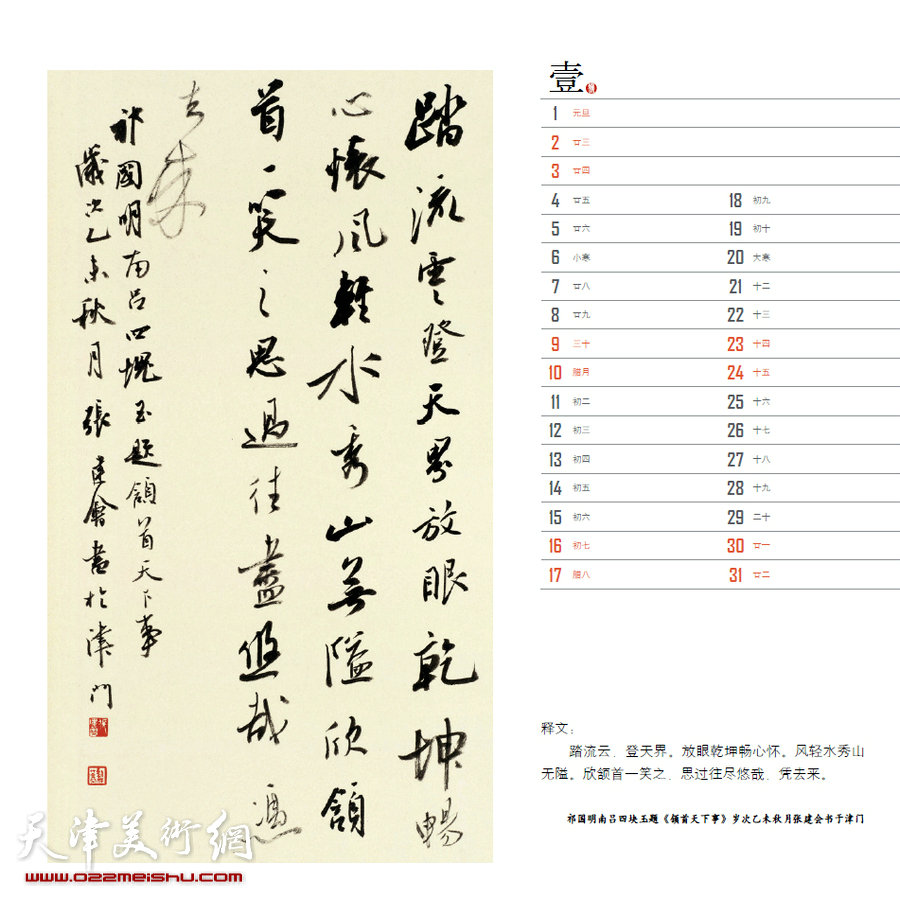 踏流雲登天界放眼乾坤暢
心懷風輕水秀山無隘欣頷
首一笑之思過往盡悠哉憑
去來
祁國明南呂四塊玉題頷首天下事
歲次乙未秋月張建會書於津門
天津美術網
www.022meishu.com
壹
1 元旦
2 廿三
3 廿四
4 廿五
5 廿六
6 小寒
7 廿八
8 廿九
9 三十
10 腊月
11 初二
12 初三
13 初四
14 初五
15 初六
16 初七
17 腊八
18 初九
19 初十
20 大寒
21 十二
22 十三
23 十四
24 十五
25 十六
26 十七
27 十八
28 十九
29 二十
30 廿一
31 廿二
释文：
踏流云，登天界。放眼乾坤畅心怀。风轻水秀山
无隘。欣颔首一笑之，思过往尽悠哉，凭去来。
祁国明南吕四块玉题《颔首天下事》岁次乙未秋月张建会书于津门